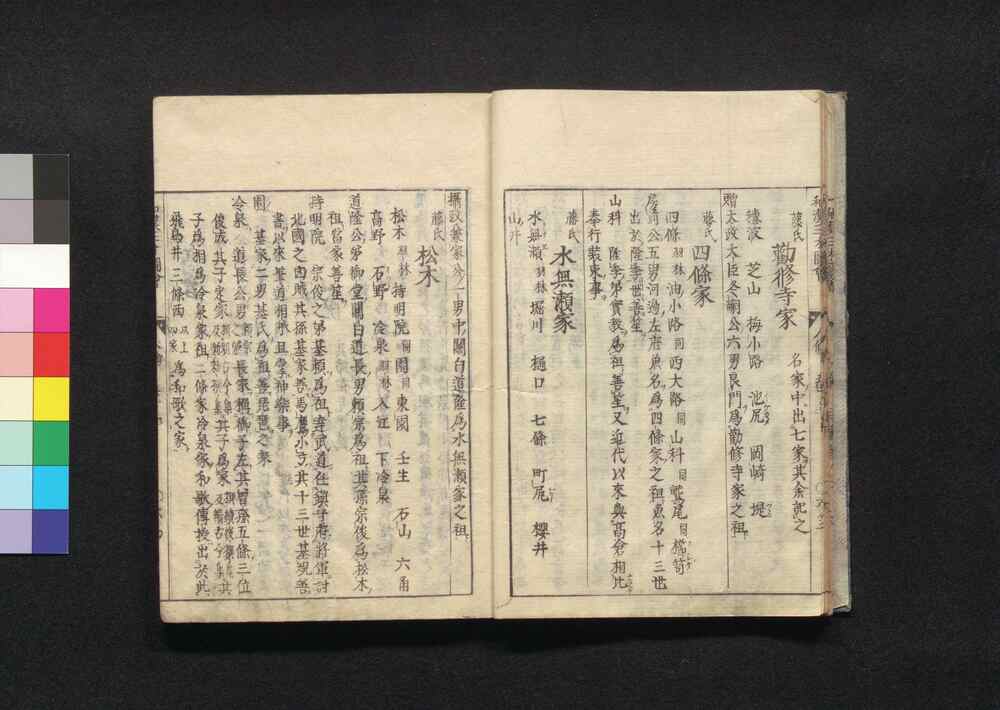 勸修寺家
藤氏
名家中出七家其余記之
穗波 芝山 梅小路 池尻 岡崎 堤
贈太政大臣冬嗣公六男良門爲勸修寺家之祖
藤氏
四條家
四條 羽林 油小路 同 西大路 同 山科 同 鷲尾 同 櫛笥
房前公五男河邊左府魚名爲四條家之祖魚名十三世
出於隆季世善笙
山科 隆季弟實教爲祖善笙又近代以來與高倉相比
奉行裝束事
藤氏
水無瀨家
水無瀨 羽林 堀川 樋口 七條 町尻 櫻井
山井
攝政兼家公一男中關白道隆爲水無瀨家之祖
藤氏
松木
松木 羽林 持明院 同 園 同 東園 壬生 石山 六角
高野 石野 冷泉 羽林 入江 下冷泉
道隆公弟御堂關白道長男賴宗爲祖其孫宗俊爲松木
祖當家善笙
持明院 宗俊之弟基賴爲祖善武道任鎭守府將軍討
北國之凶賊其孫基家善馬鷹小弓其十三世基規善
書以來筆道相承且掌神樂事
園 基家二男基氏爲祖善琵琶之業
冷泉 道長公男長家稱御子左其曾孫五條三位
俊成其子定家其子爲家其
子爲相爲冷泉家祖二條家冷泉家和歌傳授出於此
飛鳥井三條西 以上四家 爲和歌之家